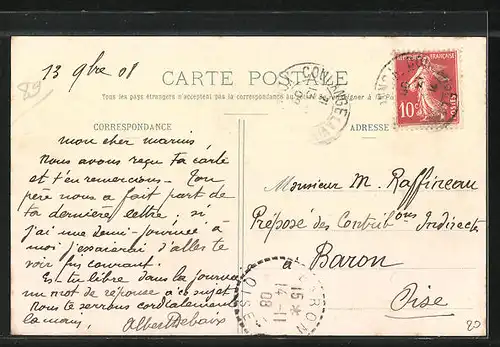 89
13 9bre 08
CARTE POSTALE
Tous les pays étrangers n'acceptent pas la correspondance au
CORRESPONDANCE
ADRESSE
10c
mon cher marius,
Nous avons reçu ta carte
et t'en remercions. Ton
père nous a fait part de
ta dernière lettre, si
j'ai une demi-journée à
moi j'essaierai d'aller te
voir fin courant.
Es-tu libre dans la journée
un mot de réponse à ce sujet
Nous te serrons cordialement
la main,
Albert Debaix
Monsieur M. Raffineau
Préposé des Contributions Indirectes
à Baron
Oise
BARON
15 *
14-11
08
OISE
20